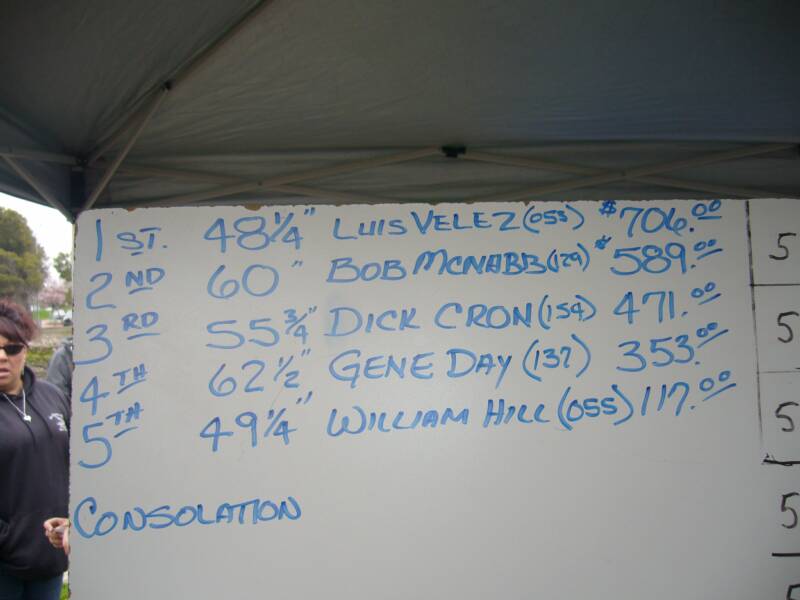 1ST. 48 1/4" LUIS VELEZ (053) $706.00
2ND 60" BOB MCNABB (129) $589.00
3RD 55 3/4" DICK CRON (154) 471.00
4TH 62 1/2" GENE DAY (137) 353.00
5TH 49 1/4" WILLIAM HILL (055) 117.00
CONSOLATION
5
5
5
5